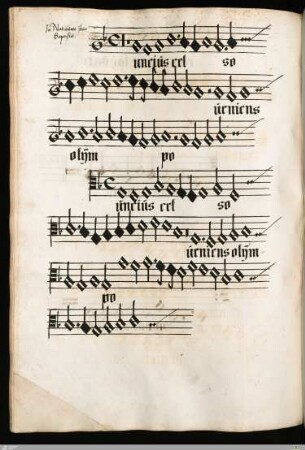 In Nativitate Sancti
Baptiste
uncius cel so
veniens
olym po
uncius cel so
veniens olym
po